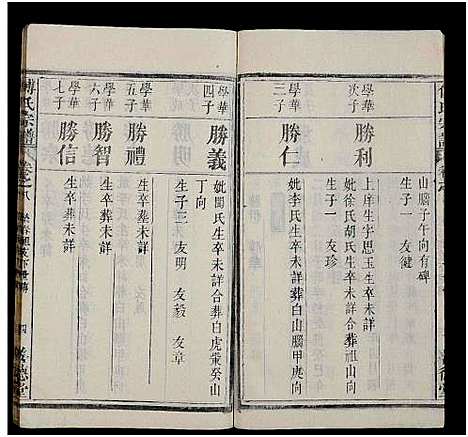 山腦子午向有碑
生子一 友健
學華次子 勝利
上庠生字思玉生卒未詳
妣徐氏胡氏生卒未詳合葬祖山向
生子一 友珍
學華三子 勝仁
妣李氏生卒未詳葬白山腦甲庚向
學華四子 勝義
妣閔氏生卒未詳合葬白虎䓁癸山
丁向
生子三 友明 友毅 友章
學華五子 勝禮
生卒葬未詳
學華六子 勝智
生卒葬未詳
學華七子 勝信
生卒葬未詳
傅氏宗譜
卷之八
四
善德堂